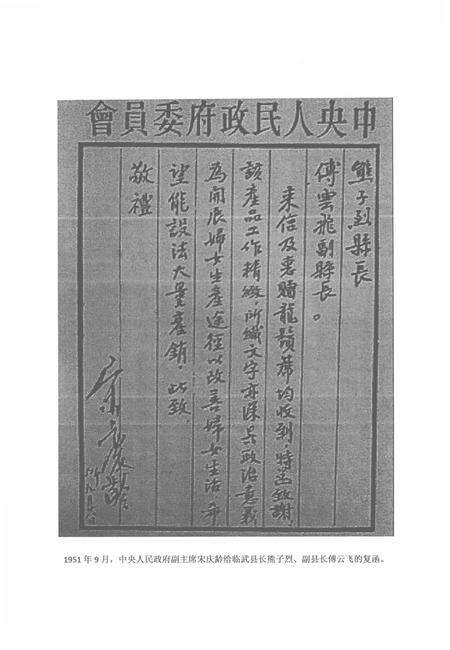 中央人民政府委員會
熊子烈縣長
傅雲飛副縣長。
来信及惠贈龍鬚蓆均收到，特函致謝，
該產品工作精緻，所織文字亦深具政治意義
為開展婦女生產途徑以改善婦女生活，并
望能設法大量產銷，此致，
敬禮
宋慶齡
1951 年 9 月，中央人民政府副主席宋庆龄给临武县长熊子烈、副县长傅云飞的复函。